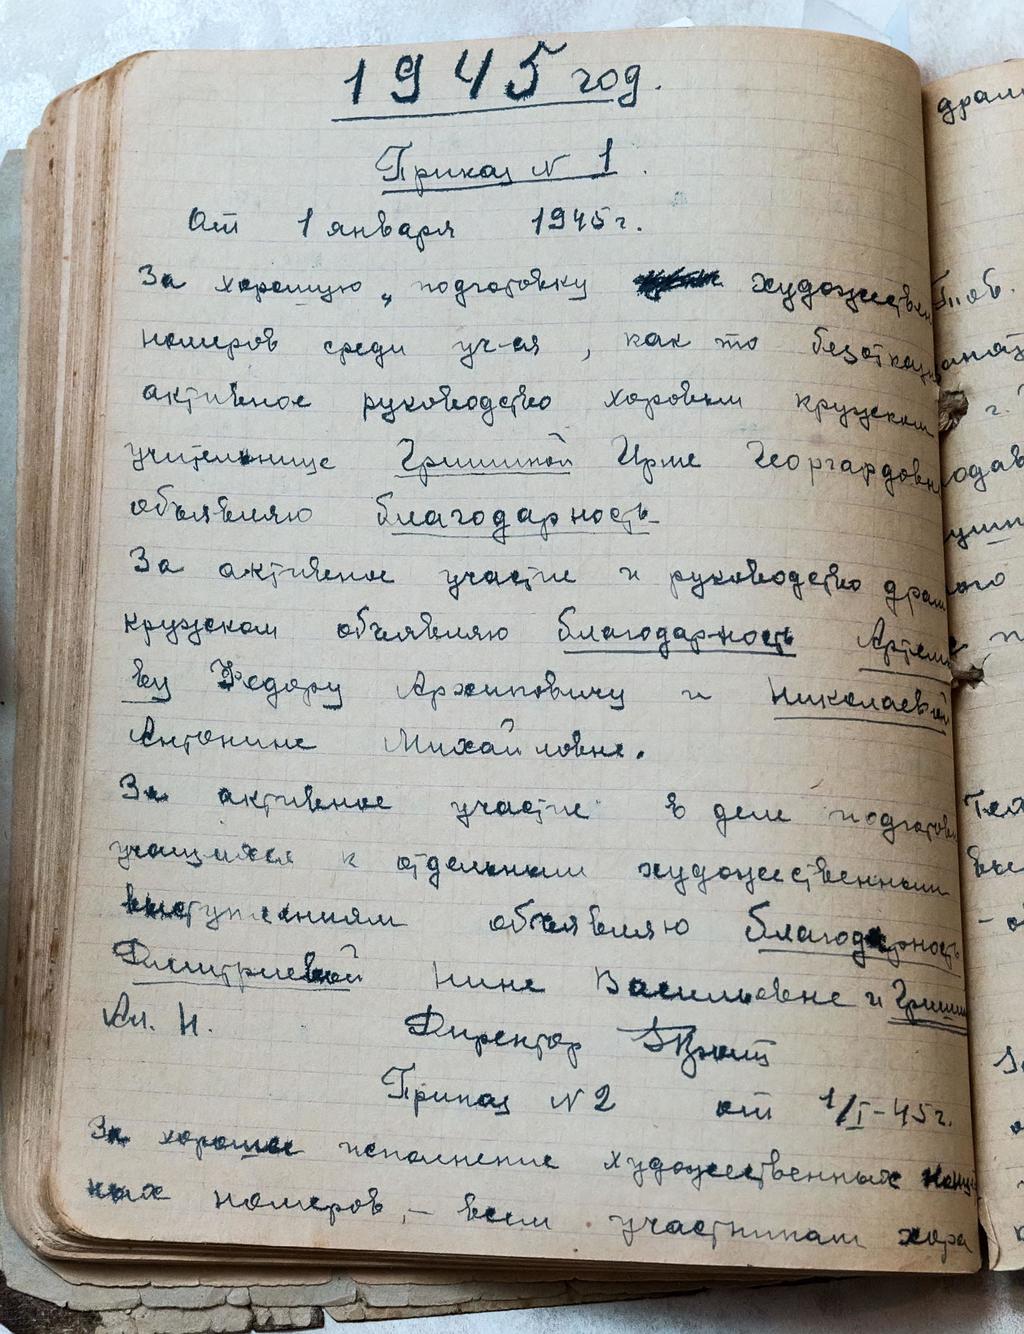 1945 год.
Приказ № 1.
От 1 января 1945 г.
За хорошую подготовку художествен
номеров среди уч-ся, как то безотказн
активное руководство хоровым кружком
учительнице Гришиной Ирме Георгардовн
объявляю благодарность
За активное участие и руководство драм
кружком объявляю благодарность Артемь
ву Федору Архиповичу и Николаевой
Антонине Михайловне.
За активное участие в деле подготовк
учащихся к отдельным художественным
выступлениям объявляю благодарность
Дмитриевой Нине Васильевне и Гришин
Ал. Н. Директор
Приказ № 2 от 1/I-45 г.
За хорошее исполнение художественных
ных номеров, - всем участникам хора